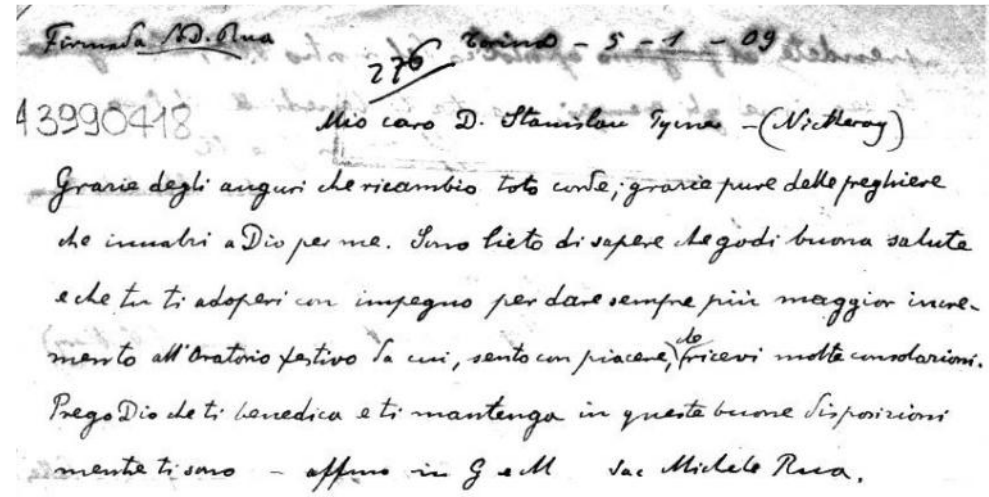 Firmada D. Rua Torino - 5 - 1 - 09
276
43990418 Mio caro D. Stanislau - (Nictheroy)
Grazie degli auguri che ricambio toto corde; grazie pure delle preghiere
che innalzi a Dio per me. Sono lieto di sapere che godi buona salute
e che tu ti adoperi con impegno per dare sempre più maggior incre-
mento all'Oratorio festivo da cui, sento con piacere, che ricevi molte consolazioni.
Prego Dio che ti benedica e ti mantenga in queste buone disposizioni
mentre ti sono - affmo in G e M Sac Michele Rua.